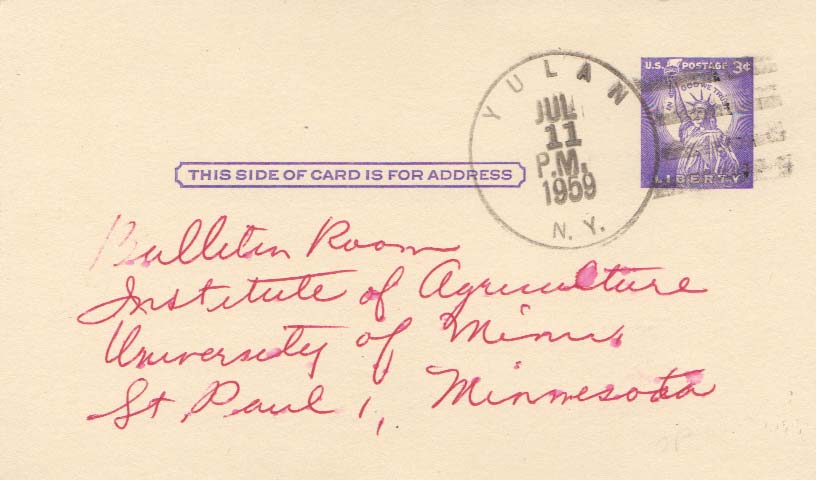 U.S. POSTAGE 3¢
IN GOD WE TRUST
LIBERTY
YULAN
JUL
11
P.M.
1959
N.Y.
THIS SIDE OF CARD IS FOR ADDRESS
Bulletin Room
Institute of Agriculture
University of Minn.
St Paul 1, Minnesota